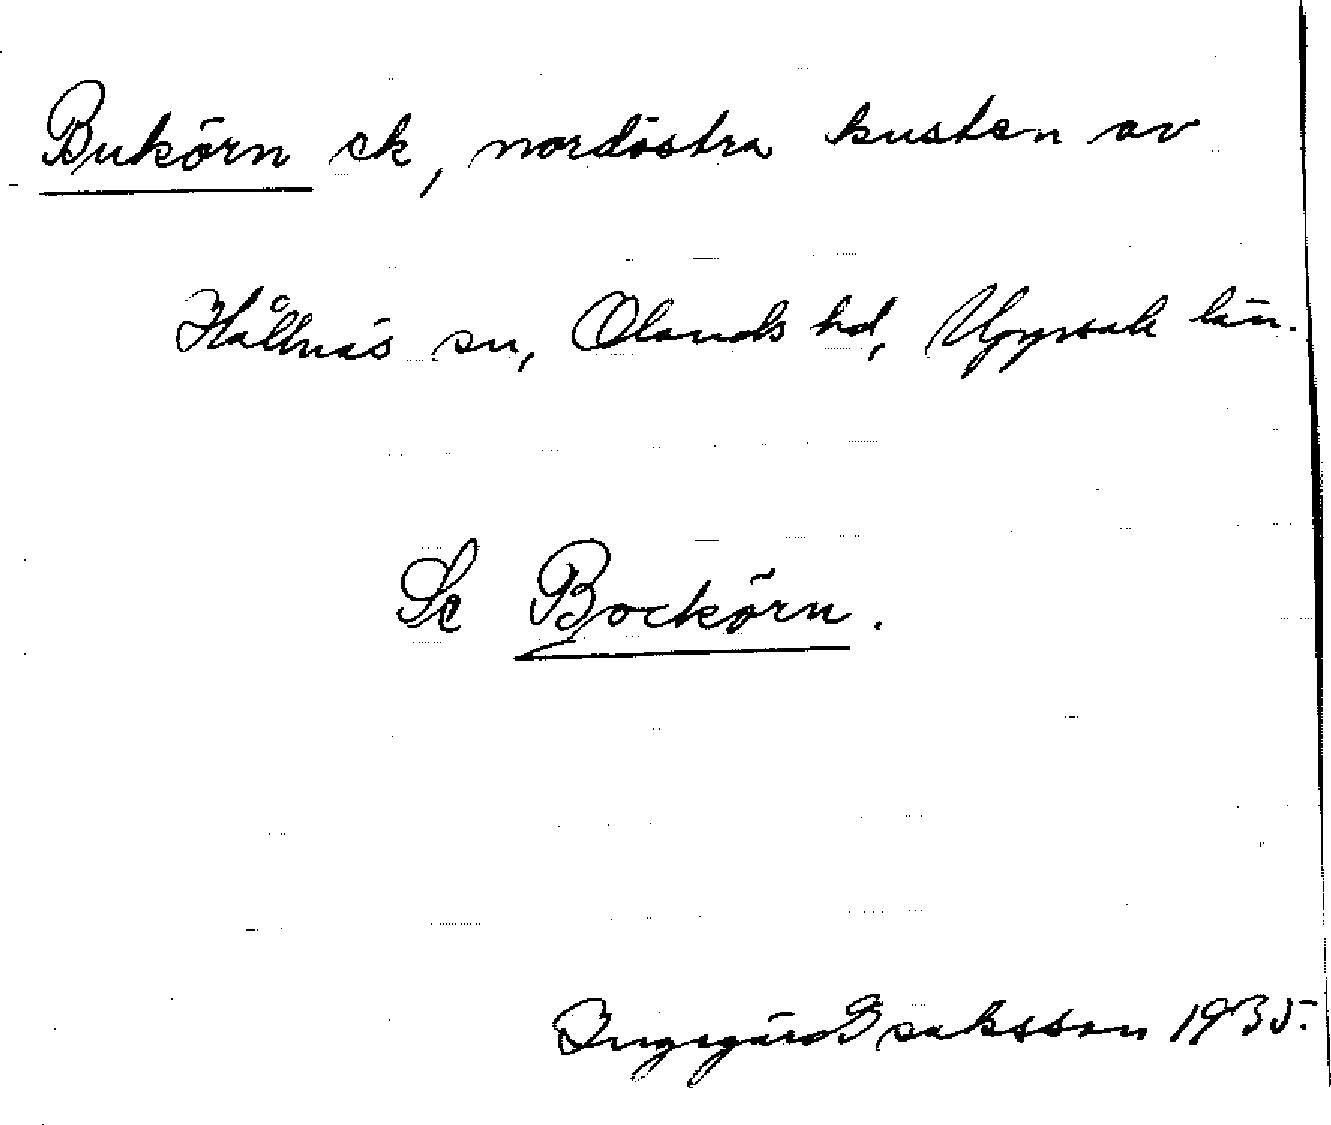 Bukörn sk, nordöstra kusten av
Hållnäs sn, Olands hd, Uppsala län.
Se Bockörn.
Ingegärd Isaksson 1935.